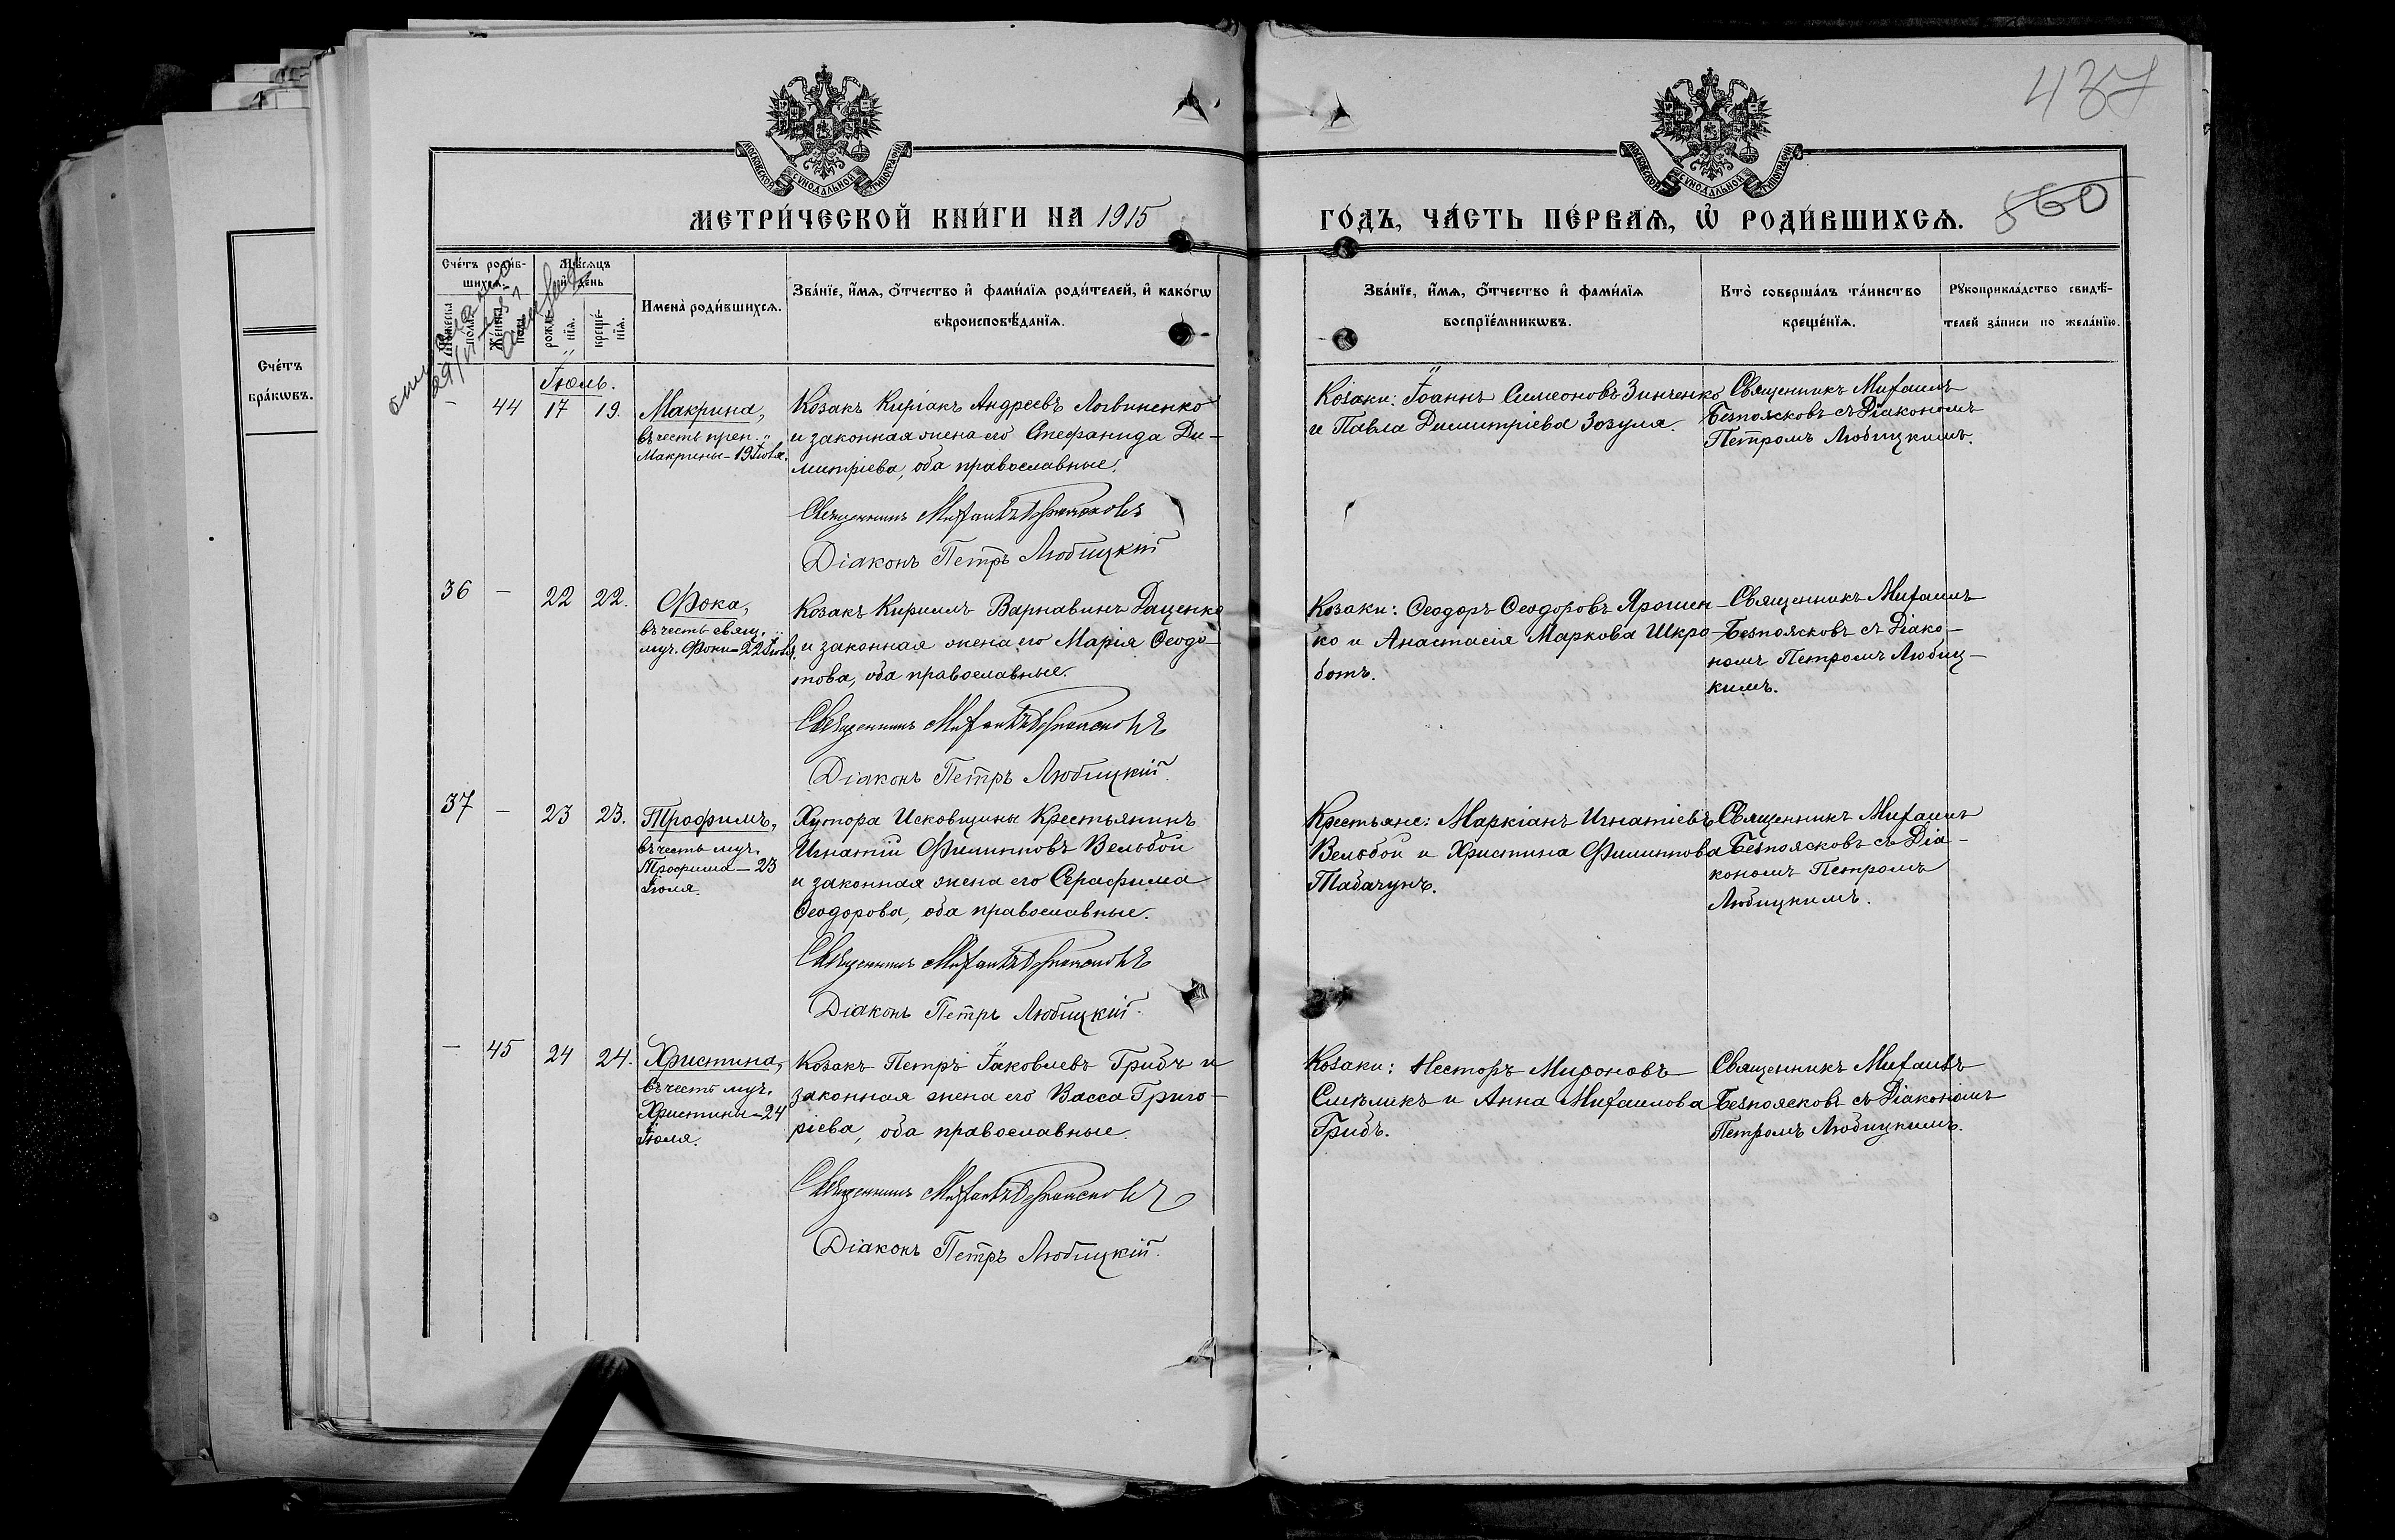 437
МЕТРИ́ЧЕСКОЙ КНИ́ГИ НА 1915
ГО́ДЪ, ЧА́СТЬ ПЕ́РВАѦ, Ѡ РОДИ́ВШИХСѦ.
560
Сче́тъ роди́в-
шихсѧ.
Мѣ́сѧцъ
и҆ де́нь
Мꙋ́жеска
по́ла.
Же́нска
по́ла.
рожде́-
нїѧ.
креще́-
нїѧ.
Имена̀ роди́вшихсѧ.
Зва́нїе, и҆́мѧ, ѻ҆́тчество и҆ фами́лїѧ роди́телей, и҆ како́гѡ
вѣроисповѣ́данїѧ.
Зва́нїе, и҆́мѧ, ѻ҆́тчество и҆ фами́лїѧ
воспрїе́мникѡвъ.
Кто̀ соверша́лъ та́инство
креще́нїѧ.
Рꙋкоприкла́дство свидѣ́-
телей за́писи по жела́нїю.
Сче́тъ
бра́кѡвъ.
Іюль.
- 44 17 19. Макрина,
въ честь преп.
Макрины - 19 Іюля.
Козакъ Киріакъ Андреевъ Логвиненко
и законная жена его Стефанида Ди-
митріева, оба православные.
Священникъ Михаилъ Безпоясковъ
Діаконъ Петръ Любицкій
Козаки: Іоаннъ Симеоновъ Зинченко
и Павла Димитріева Зозуля.
Священникъ Михаилъ
Безпоясковъ съ Діакономъ
Петромъ Любицкимъ.
36 - 22 22. Фока,
въ честь свящ.
муч. Фоки - 22 Іюля.
Козакъ Кириллъ Варнавинъ Даценко
и законная жена его Марія Ѳеодо-
това, оба православные.
Священникъ Михаилъ Безпоясковъ
Діаконъ Петръ Любицкій.
Козаки: Ѳеодоръ Ѳеодоровъ Ярошен-
ко и Анастасія Маркова Шкро-
ботъ.
Священникъ Михаилъ
Безпоясковъ съ Діако-
номъ Петромъ Любиц-
кимъ.
37 - 23 23. Трофимъ,
въ честь муч.
Трофима - 23
Іюля.
Хутора Исковщины Крестьянинъ
Игнатій Филипповъ Вельбой
и законная жена его Серафима
Ѳеодорова, оба православные.
Священникъ Михаилъ Безпоясковъ
Діаконъ Петръ Любицкій.
Крестьяне: Маркіанъ Игнатіевъ
Вельбой и Христина Филиппова
Табачунъ.
Священникъ Михаилъ
Безпоясковъ съ Діа-
кономъ Петромъ
Любицкимъ.
- 45 24 24. Христина,
въ честь муч.
Христины - 24
Іюля.
Козакъ Петръ Іаковлевъ Грибъ и
законная жена его Васса Григо-
ріева, оба православные.
Священникъ Михаилъ Безпоясковъ
Діаконъ Петръ Любицкій.
Козаки: Несторъ Мироновъ
и Анна Михаилова
Грибъ.
Священникъ Михаилъ
Безпоясковъ съ Діакономъ
Петромъ Любицкимъ.